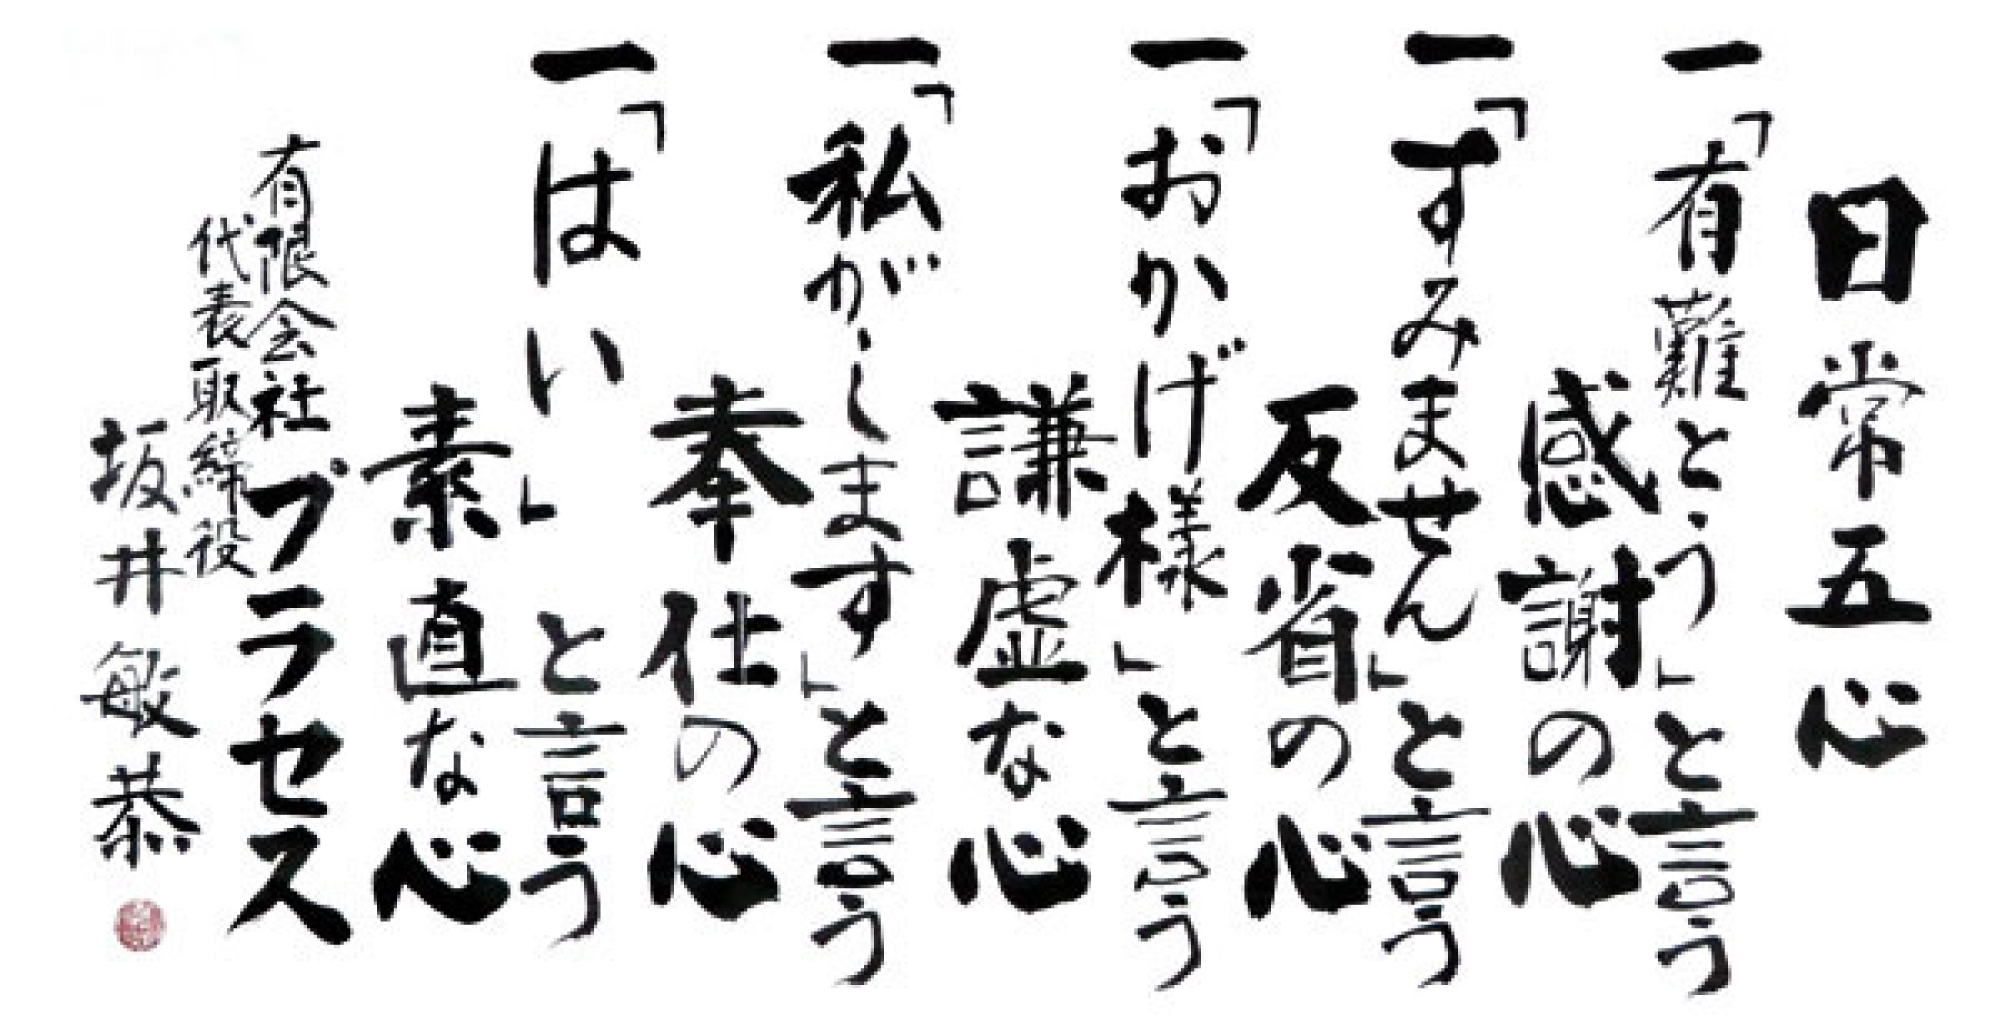 日常五心
一「有難とう」と言う
感謝の心
一「すみません」と言う
反省の心
一「おかげ様」と言う
謙虚な心
一「私がします」と言う
奉仕の心
一「はい」と言う
素直な心
有限会社プラセス
代表取締役
坂井敏恭